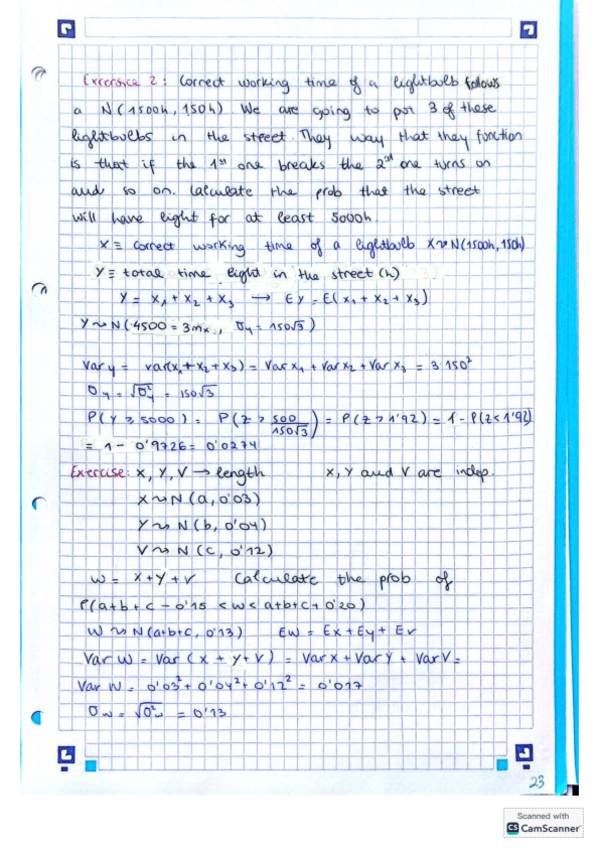 Exercise 2: Correct working time of a lightbulb follows
a N(1500h, 150h). We are going to put 3 of these
lightbulbs in the street. They way that they function
is that if the 1st one breaks the 2nd one turns on
and so on. Calculate the prob that the street
will have light for at least 5000h.
X ≡ correct working time of a lightbulb X~N(1500h, 150h)
Y ≡ total time light in the street (h)
Y = X₁ + X₂ + X₃ → EY = E(X₁ + X₂ + X₃)
Y~N(4500 = 3mₓ, σy = 150√3)
Var y = var(X₁ + X₂ + X₃) = Var X₁ + Var X₂ + Var X₃ = 3·150²
σy = √σ²y = 150√3
P(Y ≥ 5000) = P(Z > 500/150√3) = P(Z > 1'92) = 1 - P(Z < 1'92)
= 1 - 0'9726 = 0'0274
Exercise: X, Y, V → length X, Y and V are indep.
X~N(a, 0'03)
Y~N(b, 0'04)
V~N(c, 0'12)
W = X+Y+V Calculate the prob of
P(a+b+c - 0'15 < W < a+b+c+0'20)
W~N(a+b+c, 0'13) EW = Ex + Ey + Ev
Var W = Var (X + Y + V) = Var X + Var Y + Var V =
Var W = 0'03² + 0'04² + 0'12² = 0'017
σw = √σ²w = 0'13
23
Scanned with
CS CamScanner